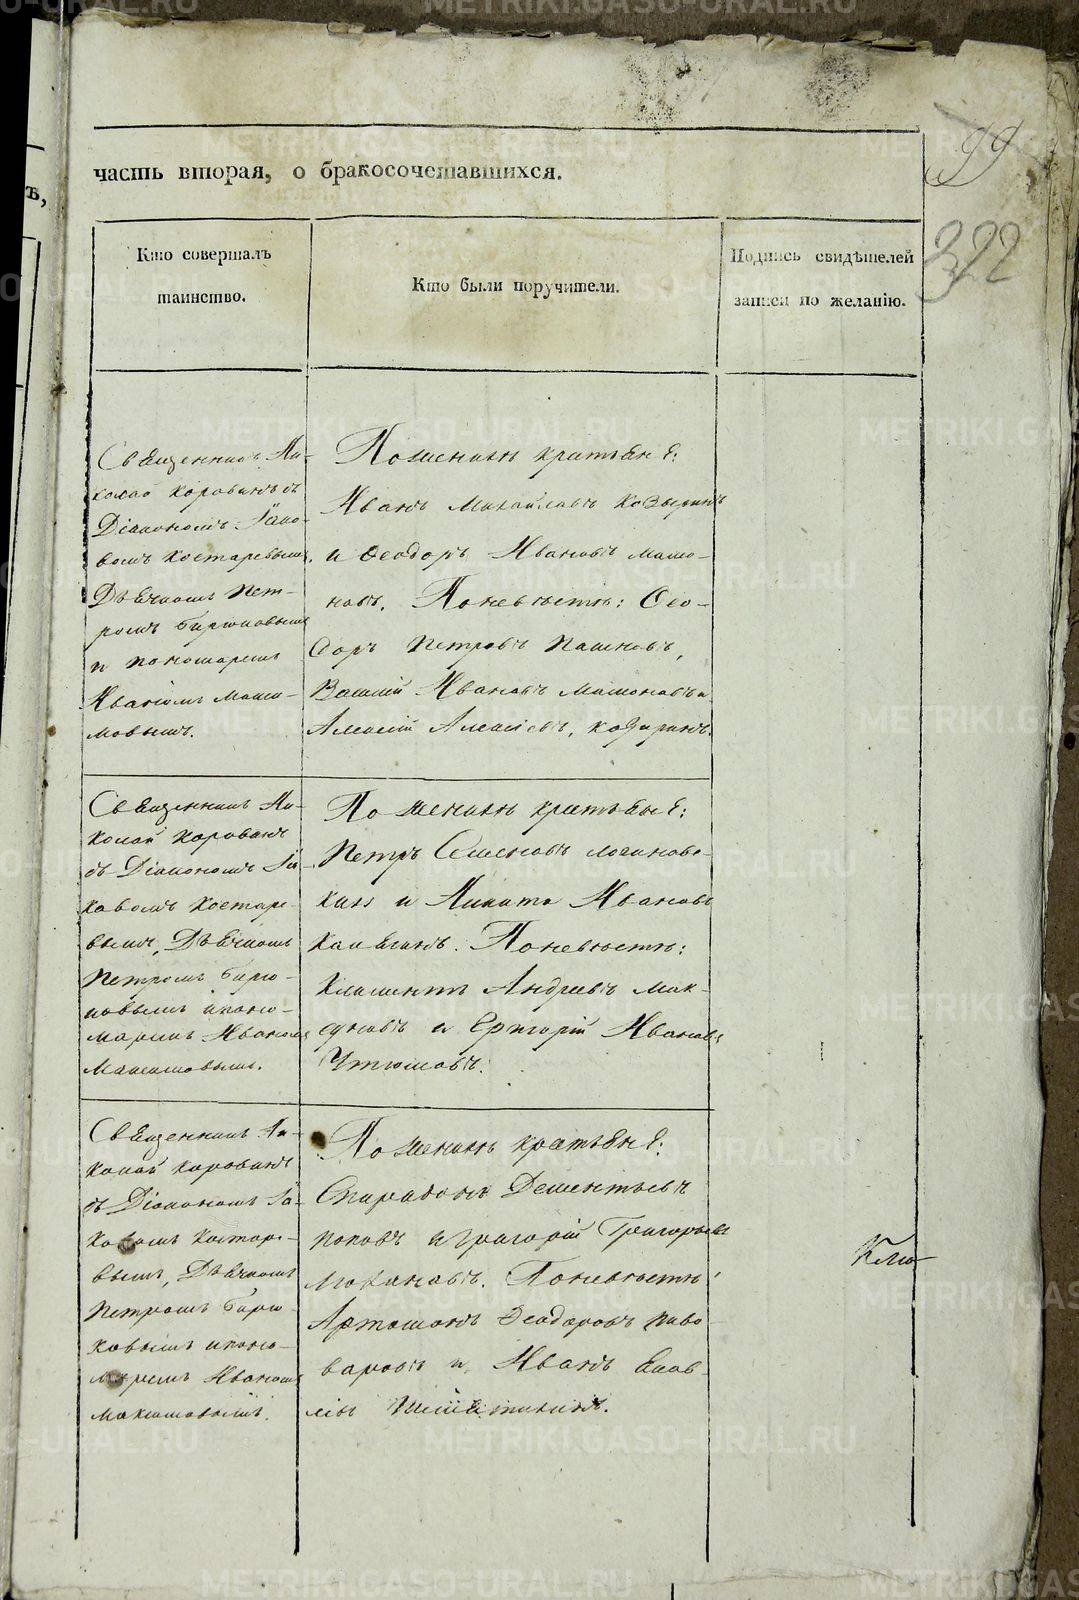 часть вторая, о бракосочетавшихся.
99
392
Кто совершалъ
таинство.
Кто были поручители.
Подпись свидѣтелей
записи по желанію.
Священникъ Ни-
колай Корованъ съ
Діакономъ Іако-
вомъ Костаревымъ
Дьячкомъ Пет-
ромъ Бирюковымъ
и пономаремъ
Иваномъ Макси-
мовымъ.
По женихѣ крестьяне:
Иванъ Михайловъ Козыринъ
и Феодоръ Ивановъ мамо-
новъ. По невѣстѣ: Фео-
доръ Петровъ Пашковъ,
Василій Ивановъ Мамоновъ и
Алексій Алексіевъ, Козыринъ.
Священникъ Ни-
колай Корованъ
съ Діакономъ Іа-
ковомъ Костаре-
вымъ, Дьячкомъ
Петромъ Бирю-
ковымъ и поно-
маремъ Иваномъ
Максимовымъ.
По женихѣ крестьяне:
Петръ Семеновъ
и Никита Ивановъ
По невѣстѣ:
Климентъ Андреевъ
и Григорій Ивановъ
Утюмовъ.
Священникъ Ни-
колай Корованъ
съ Діакономъ Іа-
ковомъ Костаре-
вымъ, Дьячкомъ
Петромъ Бирю-
ковымъ и поно-
маремъ Иваномъ
Максимовымъ.
По женихѣ крестьяне:
Спиридонъ Дементьевъ
поповъ и Григорій Григорьевъ
По невѣстѣ:
Артамонъ Феодоровъ пиво-
варовъ и Иванъ